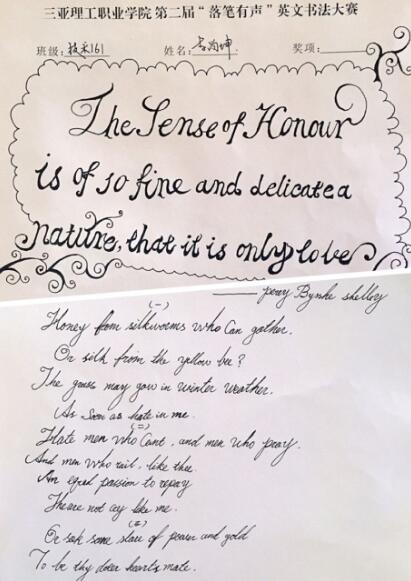 三亚理工职业学院 第二届“落笔有声”英文书法大赛
班级: 技术161 姓名: 坤 奖项:
The Sense of Honour
is of so fine and delicate a
nature, that it is only love
—— percy Bynhe shelley
(一)
Honey from silkworms who Can gather,
Or silk from the yellow bee?
The grass may gow in winter weather.
As Soon as hate in me.
(二)
Hate men who Cant, and men who pray.
And men who rail, like thee.
An equal passion to repay
They are not coy like me.
(三)
Or seek some slave of power and gold
To be thy dear hearts mate.